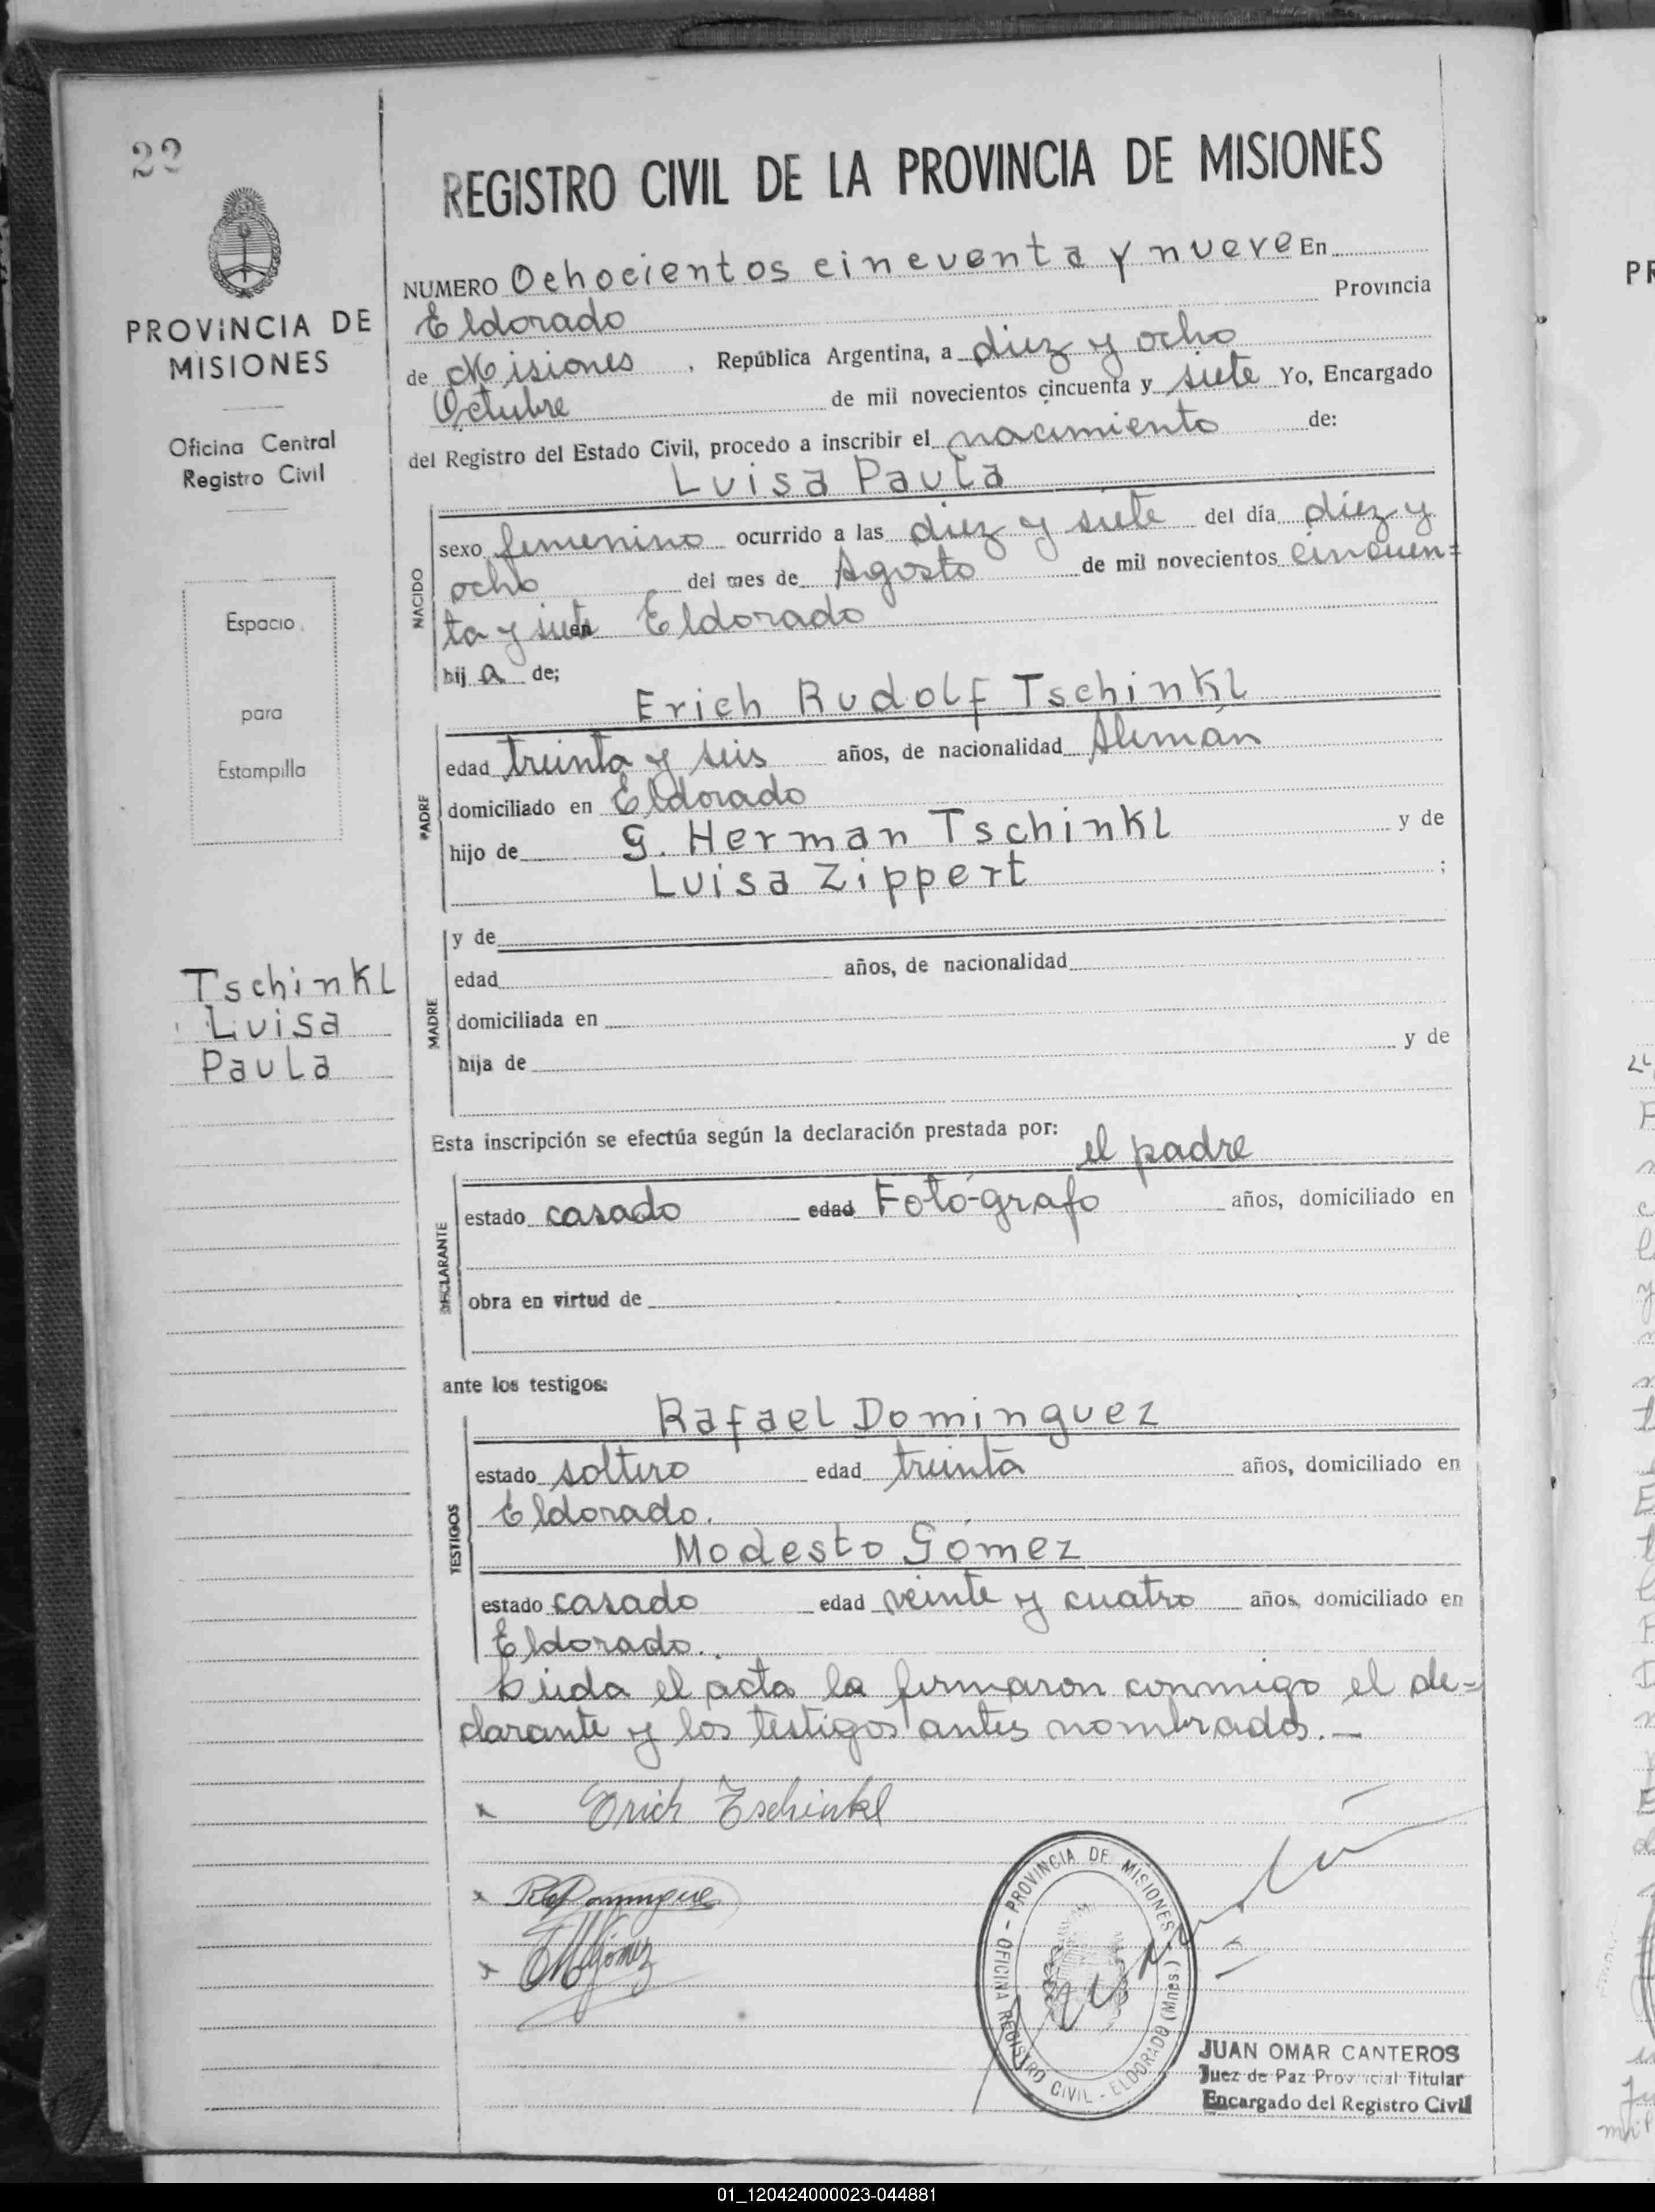 22
PROVINCIA DE
MISIONES
Oficina Central
Registro Civil
Espacio
para
Estampilla
Tschinkl
Luisa
Paula
REGISTRO CIVIL DE LA PROVINCIA DE MISIONES
NUMERO Ochocientos cincuenta y nueve En
Eldorado Provincia
de Misiones , República Argentina, a diez y ocho
Octubre de mil novecientos cincuenta y siete Yo, Encargado
del Registro del Estado Civil, procedo a inscribir el nacimiento de:
Luisa Paula
NACIDO
sexo femenino ocurrido a las diez y siete del día diez y
ocho del mes de Agosto de mil novecientos cincuen=
ta y siete en Eldorado
hij a de;
Erich Rudolf Tschinkl
PADRE
edad treinta y seis años, de nacionalidad Alemán
domiciliado en Eldorado
hijo de G. Herman Tschinkl y de
Luisa Zippert ;
MADRE
y de
edad años, de nacionalidad
domiciliada en
hija de y de
Esta inscripción se efectúa según la declaración prestada por:
el padre
DECLARANTE
estado casado edad Fotógrafo años, domiciliado en
obra en virtud de
ante los testigos:
Rafael Dominguez
TESTIGOS
estado soltero edad treinta años, domiciliado en
Eldorado.
Modesto Gómez
estado casado edad veinte y cuatro años, domiciliado en
Eldorado.
Leida el acta la firmaron conmigo el de=
clarante y los testigos antes nombrados.—
x Erich Tschinkl
x Dominguez
x MGómez
OFICINA REGISTRO CIVIL - ELDORADO (Mnes.) - PROVINCIA DE MISIONES
JUAN OMAR CANTEROS
Juez de Paz Provincial Titular
Encargado del Registro Civil
01_120424000023-044881